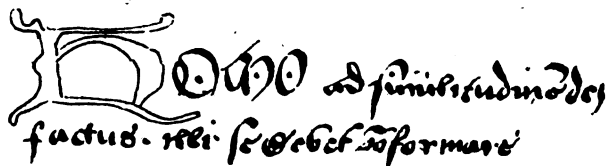 HOMO ad similitudinē dei
factus. illi se debet ↄformare